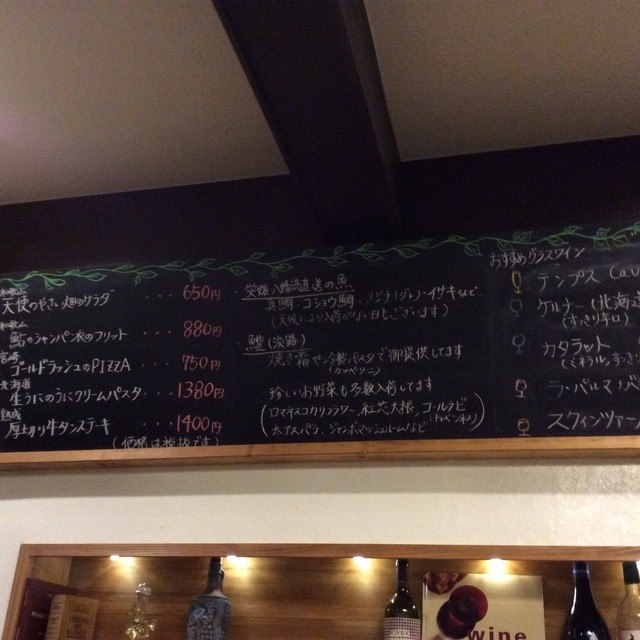 天使のやさい畑サラダ ････ 650円
鮎のシャンパン衣のフリット ････ 880円
宮崎
ゴールドラッシュのPIZZA ････ 750円
北海道
生うにのうにクリームパスタ ･･･ 1380円
熟成
厚切り牛タンステーキ ････ 1400円
(価格は税抜です)
愛媛八幡浜直送の魚
真鯛 コショウ鯛 イサキなど
(天候により入荷がない日もございます)
鱧 (淡路)
冷製パスタで御提供してます
珍しいお野菜も多数入荷してます
ロマネスコカリフラワー、紅芯大根、コールラビ
太アスパラ、ジャンボマッシュルームなど
おすすめグラスワイン
テンプス Cav
ケルナー (北海道
カタラット
ラ・パルマ
スクィンツァーノ
wine